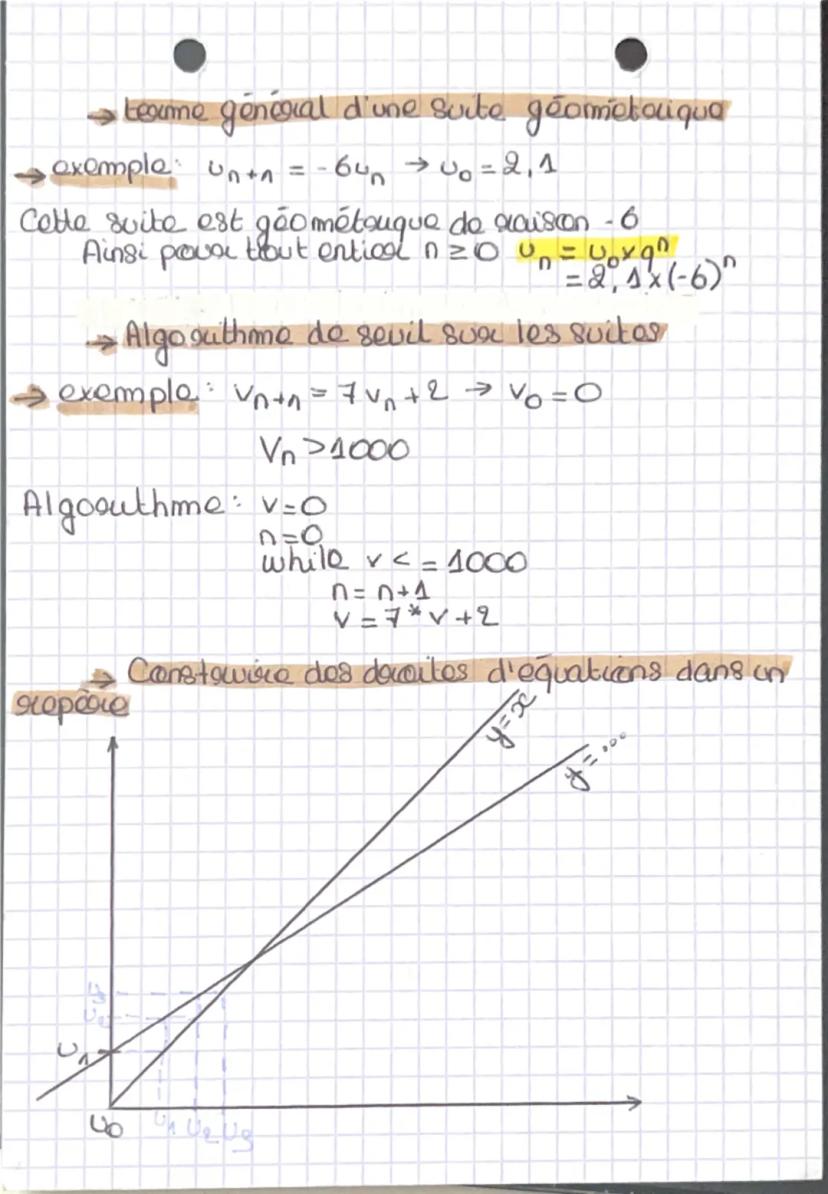 → terme général d'une suite géométrique
→ exemple: uₙ₊₁ = -6uₙ → u₀ = 2,1
Cette suite est géométrique de raison -6
Ainsi pour tout entier n ≥ 0 uₙ = u₀ × qⁿ
= 2,1 × (-6)ⁿ
→ Algorithme de seuil sur les suites
→ exemple: vₙ₊₁ = 7vₙ + 2 → v₀ = 0
Vₙ > 1000
Algorithme: v = 0
n = 0
while v <= 1000
n = n+1
v = 7*v+2
→ Construire des droites d'équations dans un
repère
y = x
y = ...
u₃
u₂
u₁
u₀ u₁ u₂ u₃